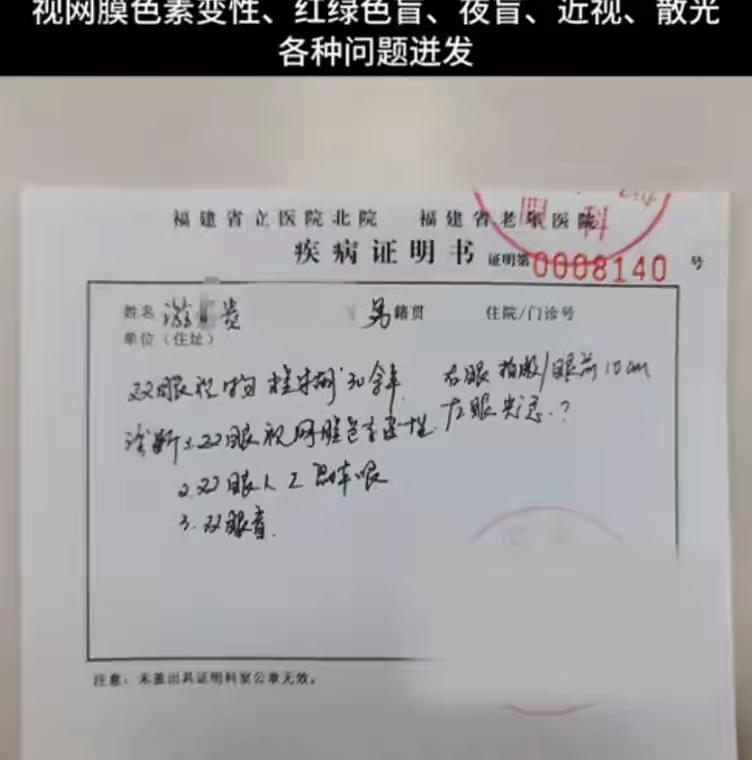 视网膜色素变性、红绿色盲、夜盲、近视、散光
各种问题迸发
福建省立医院北院 福建省老年医院
眼科
疾病证明书 证明第0008140号
姓名 游 贵 男 籍贯 住院/门诊号
单位（住址）
双眼视物模糊30余年 右眼 指数/眼前10cm
诊断:1.双眼视网膜色素变性 左眼光感.?
2.双眼人工晶体眼
3.双眼盲.
注意：未盖出具证明科室公章无效。